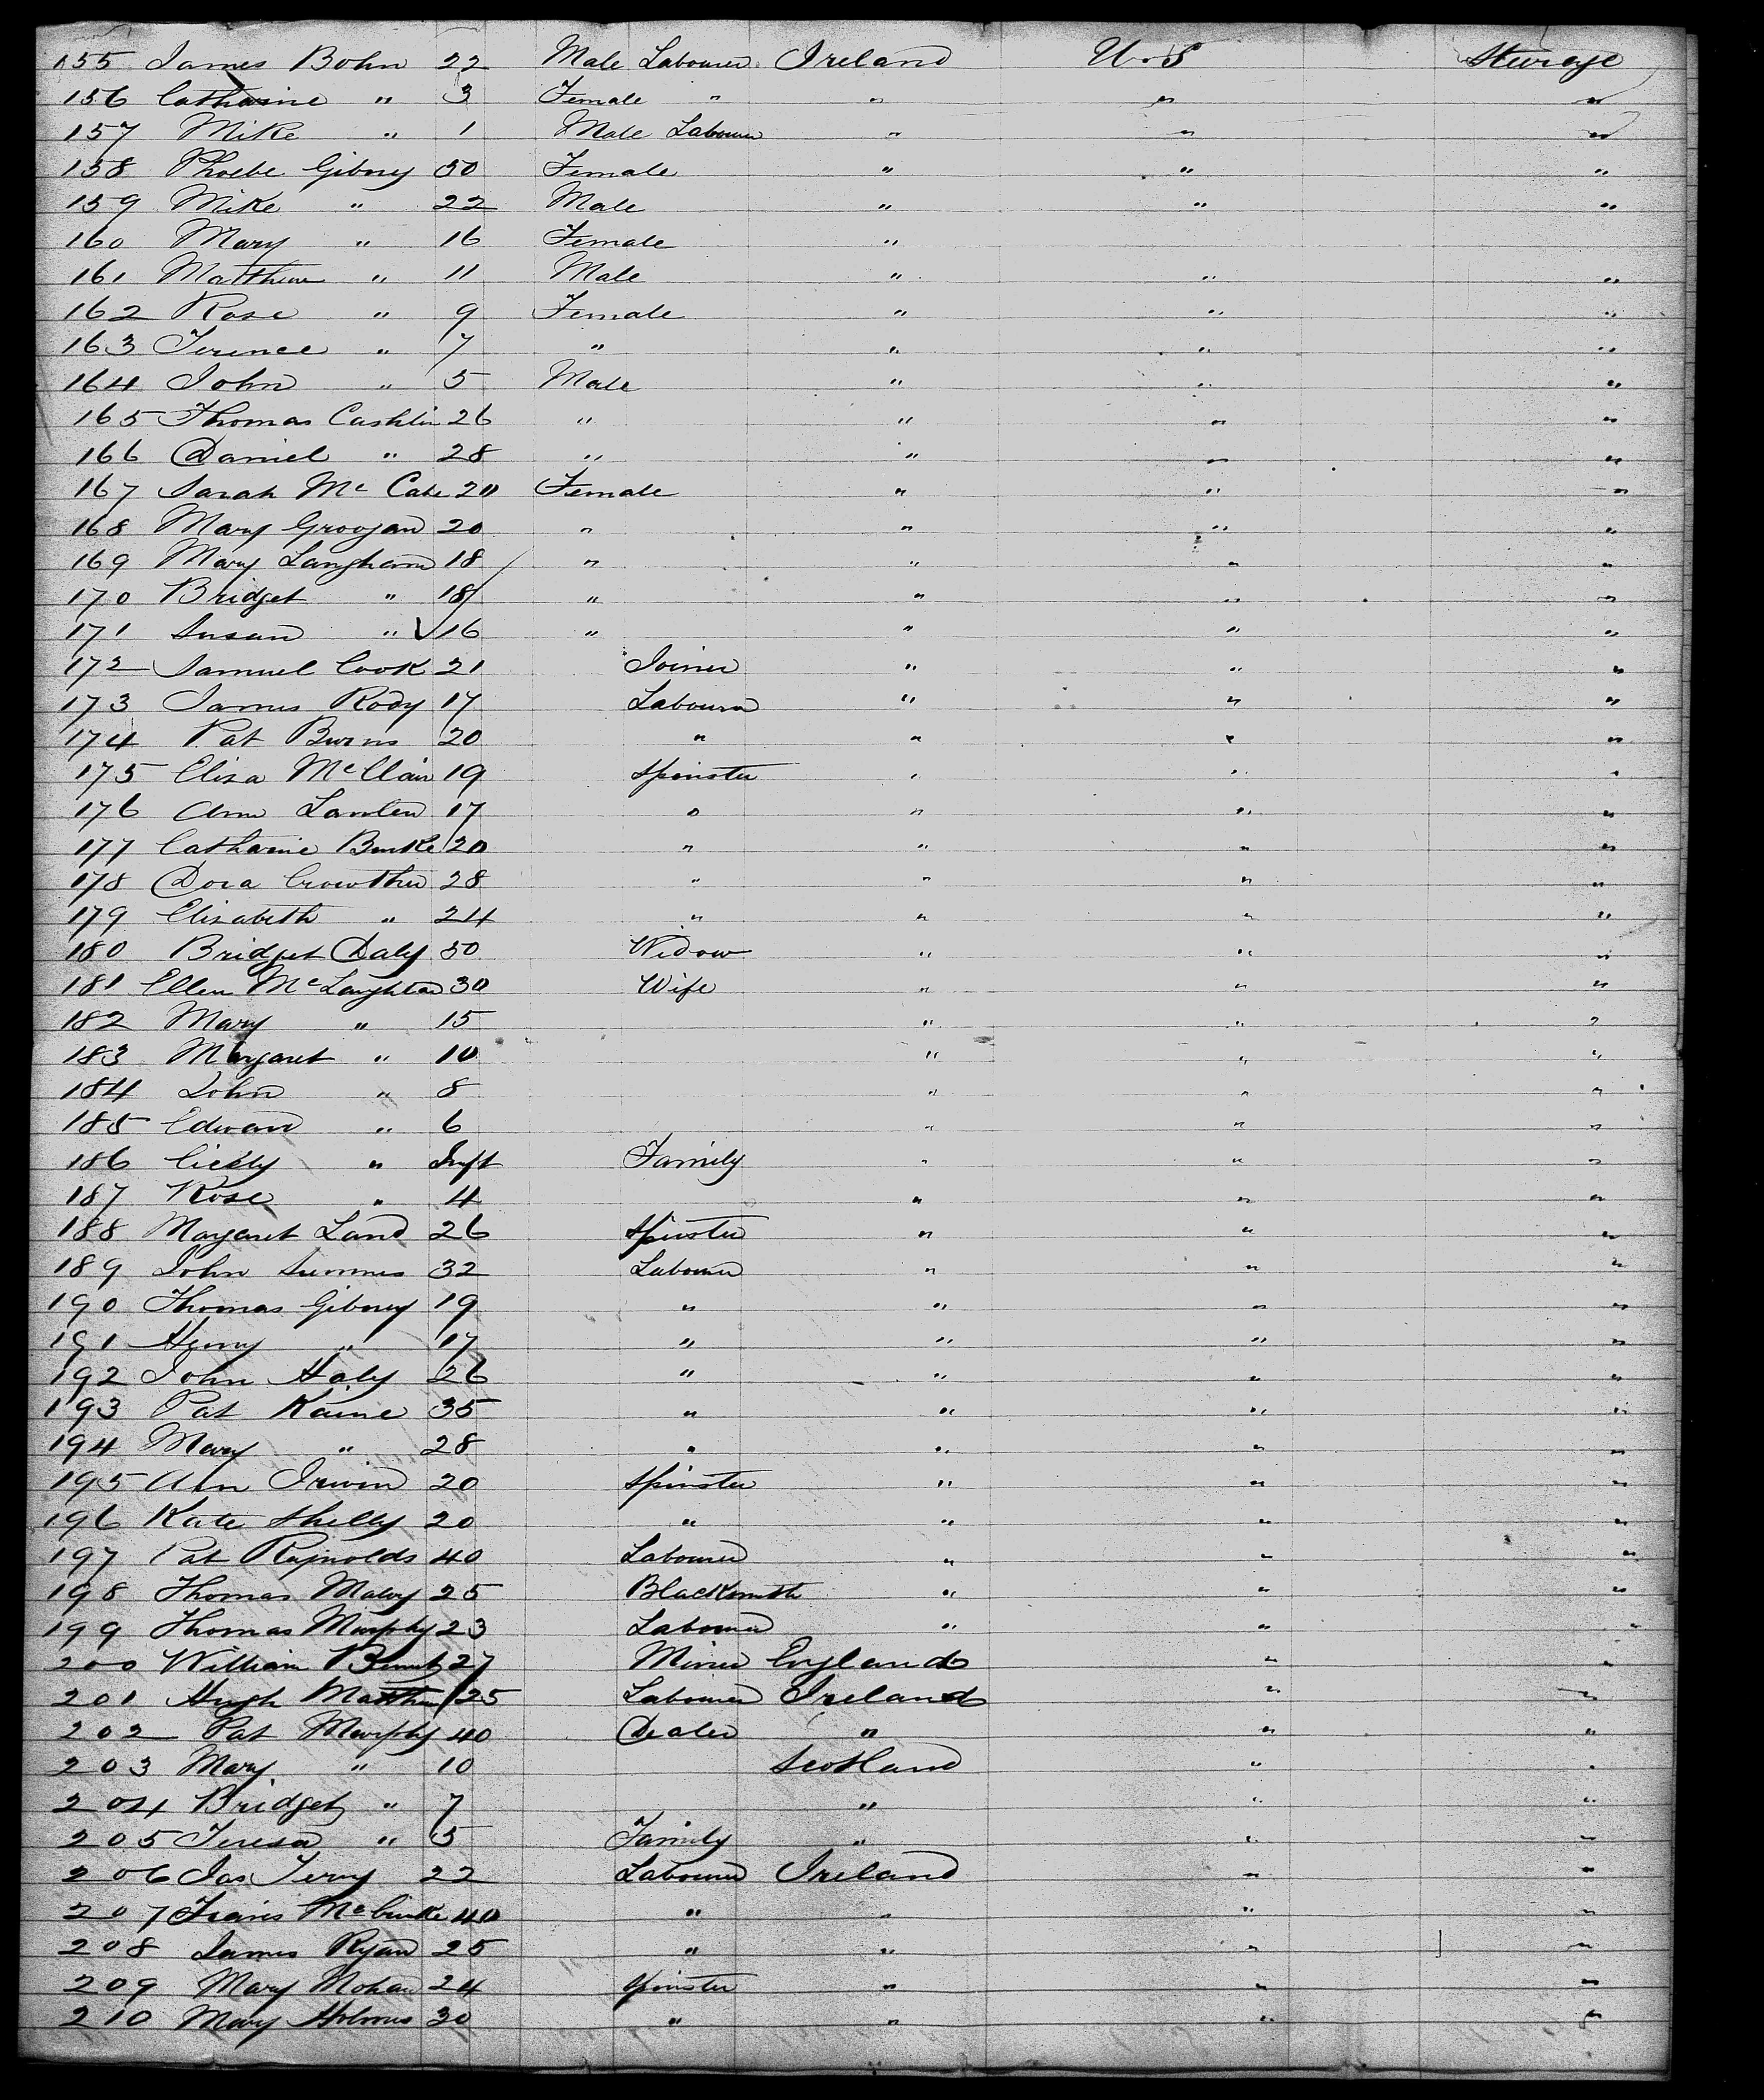 155 James Bohn 22 Male Labourer Ireland U.S Steerage
156 Catharine " 3 Female " " " "
157 Mike " 1 Male Labourer " " "
158 Phoebe Gibney 50 Female " " "
159 Mike " 22 Male " " "
160 Mary " 16 Female "
161 Matthew " 11 Male " " "
162 Rose " 9 Female " " "
163 Terence " 7 " " " "
164 John " 5 Male " " "
165 Thomas Cashlin 26 " " " "
166 Daniel " 28 " " " "
167 Sarah Mc Cabe 20 Female " " "
168 Mary Groogan 20 " " " "
169 Mary Langham 18 " " " "
170 Bridget " 18 " " " "
171 Susan " 16 " " " "
172 Samuel Cook 21 Joiner " " "
173 James Rody 17 Labourer " " "
174 Pat Burns 20 " " " "
175 Eliza McClain 19 Spinster " " "
176 Ann Lawlen 17 " " " "
177 Catharine Burke 20 " " " "
178 Dora Crowther 28 " " " "
179 Elizabeth " 24 " " " "
180 Bridget Daly 50 Widow " " "
181 Ellen McLaughton 30 Wife " " "
182 Mary " 15 " " "
183 Margaret " 10 " " "
184 John " 8 " " "
185 Edward " 6 " " "
186 Cickly " Inft Family " " "
187 Rose " 4 " " "
188 Margaret Land 26 Spinster " " "
189 John Summes 32 Labourer " " "
190 Thomas Gibney 19 " " " "
191 Henry " 17 " " " "
192 John Haly 26 " " " "
193 Pat Kaine 35 " " " "
194 Mary " 28 " " " "
195 Ann Irwin 20 Spinster " " "
196 Kate Shelly 20 " " " "
197 Pat Raynolds 40 Labourer " " "
198 Thomas Maloy 25 Blacksmith " " "
199 Thomas Murphy 23 Labourer " " "
200 William 27 Miner England " "
201 Hugh Matthew 25 Labourer Ireland " "
202 Pat Murphy 40 Dealer " " "
203 Mary " 10 Scotland " "
204 Bridget " 7 " " "
205 Teresa " 5 Family " " "
206 Jas Terry 22 Labourer Ireland " "
207 Francis 40 " " " "
208 James Ryan 25 " " " "
209 Mary Mohan 24 Spinster " " "
210 Mary Holmes 30 " " " "